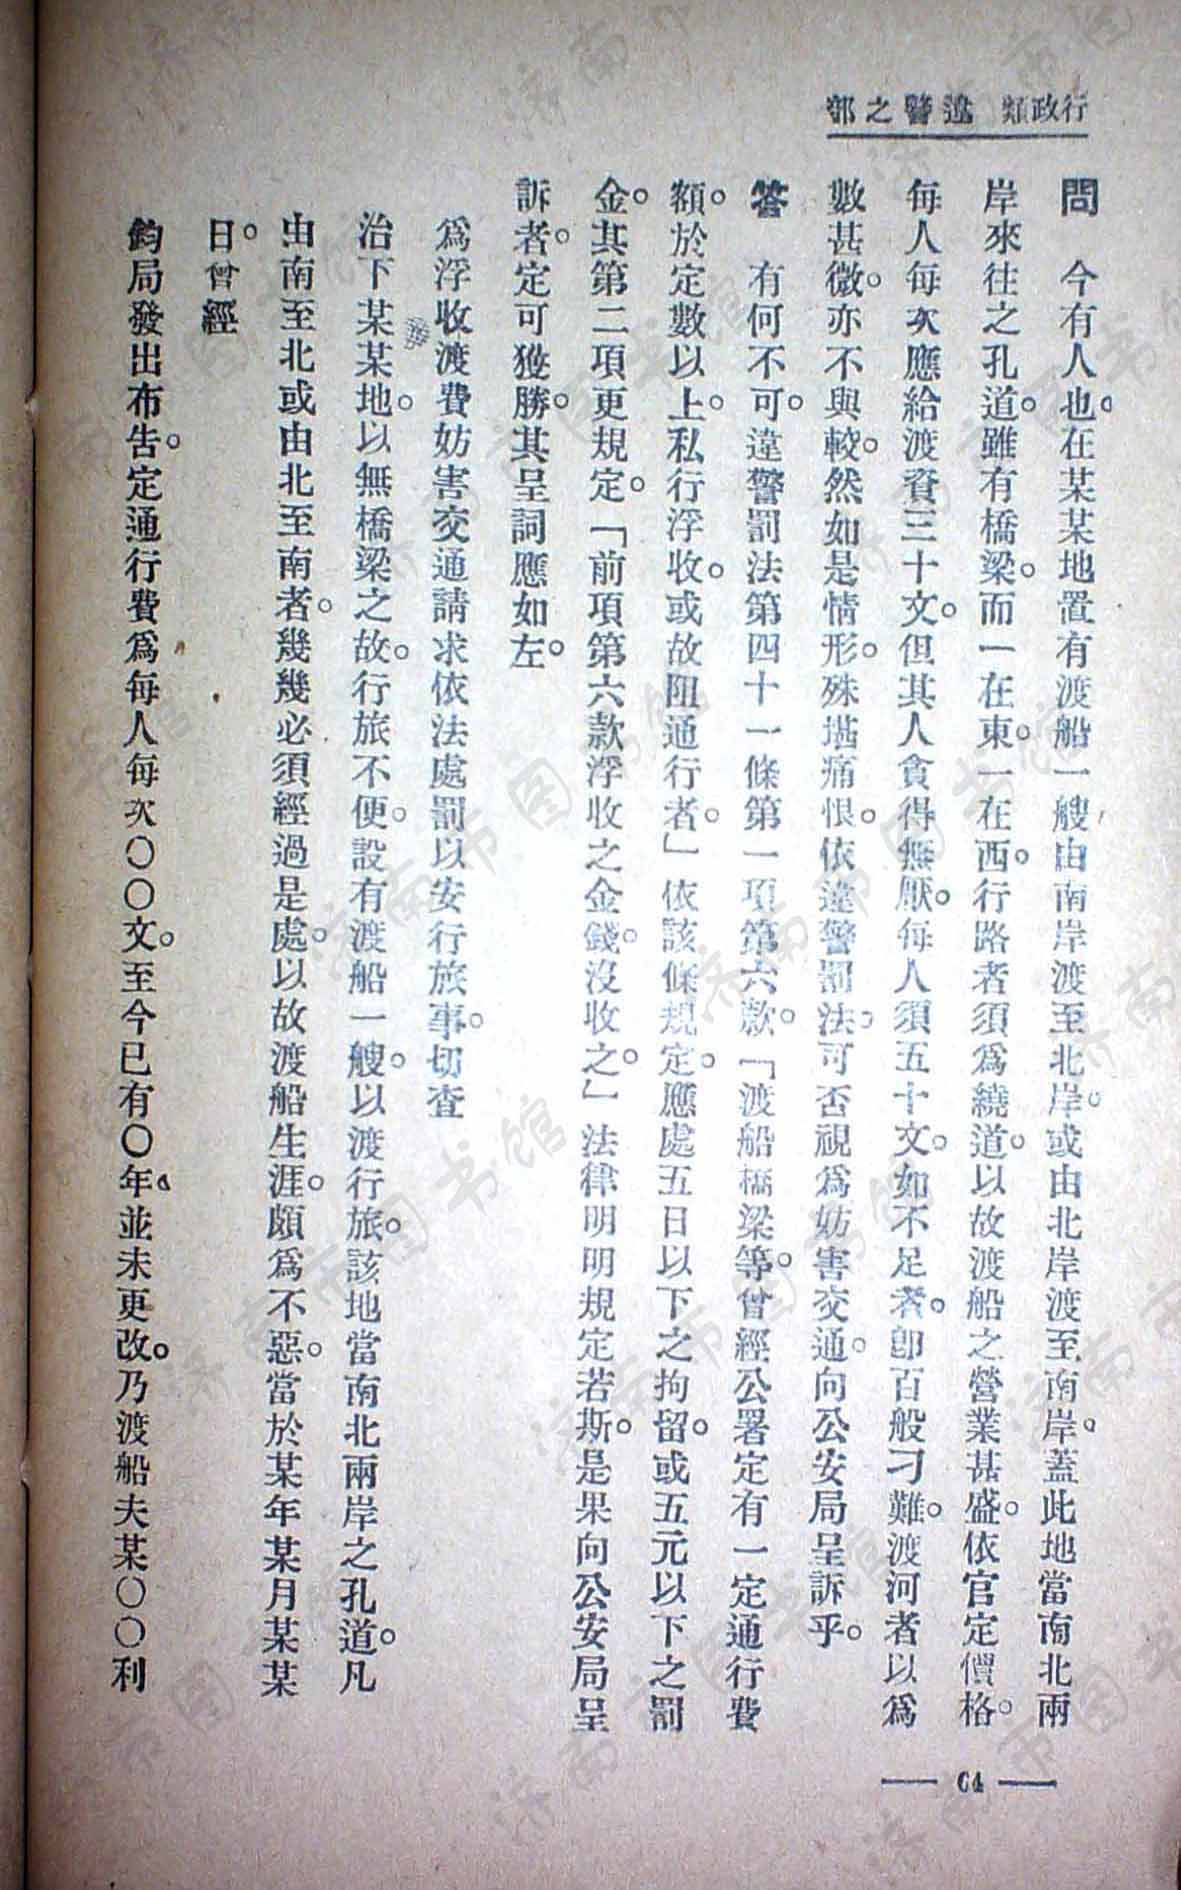 行政類　違警之部
問　今有人也。在某某地置有渡船一艘由南岸渡至北岸。或由北岸渡至南岸。蓋此地當南北兩
岸來往之孔道。雖有橋梁。而一在東。一在西。行路者須爲繞道。以故渡船之營業甚盛。依官定價格。
每人每次應給渡資三十文。但其人貪得無厭。每人須五十文。如不足者。卽百般刁難。渡河者以爲
數甚微。亦不與較。然如是情形。殊堪痛恨。依違警罰法。可否視爲妨害交通。向公安局呈訴乎。
答　有何不可。違警罰法第四十一條第一項第六款。「渡船橋梁等。曾經公署定有一定通行費
額。於定數以上。私行浮收。或故阻通行者。」依該條規定。應處五日以下之拘留。或五元以下之罰
金。其第二項更規定。「前項第六款浮收之金錢。沒收之。」法律明明規定若斯。是果向公安局呈
訴者。定可獲勝。其呈詞應如左。
爲浮收渡費妨害交通請求依法處罰以安行旅事。切查
治下某某地。以無橋梁之故。行旅不便。設有渡船一艘。以渡行旅。該地當南北兩岸之孔道。凡
由南至北或由北至南者。幾幾必須經過是處。以故渡船生涯。頗爲不惡。當於某年某月某某
日。曾經
鈞局發出布告。定通行費爲每人每次〇〇文。至今已有〇年。並未更改。乃渡船夫某〇〇利
— 64 —
济南市图书馆